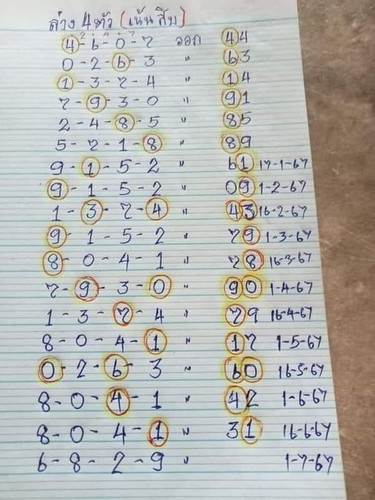 ล่าง 4 ตัว (เน้นสิบ)
4-6-0-7 ออก 44
0-2-6-3 " 63
1-3-7-4 " 14
7-9-3-0 " 91
2-4-8-5 " 85
5-7-1-8 " 89
9-1-5-2 " 61 17-1-67
9-1-5-2 " 09 1-2-67
1-3-7-4 " 43 16-2-67
9-1-5-2 " 79 1-3-67
8-0-4-1 " 78 16-3-67
7-9-3-0 " 90 1-4-67
1-3-7-4 " 79 16-4-67
8-0-4-1 " 17 1-5-67
0-2-6-3 " 60 16-5-67
8-0-4-1 " 42 1-6-67
8-0-4-1 " 31 16-6-67
6-8-2-9 " 1-7-67